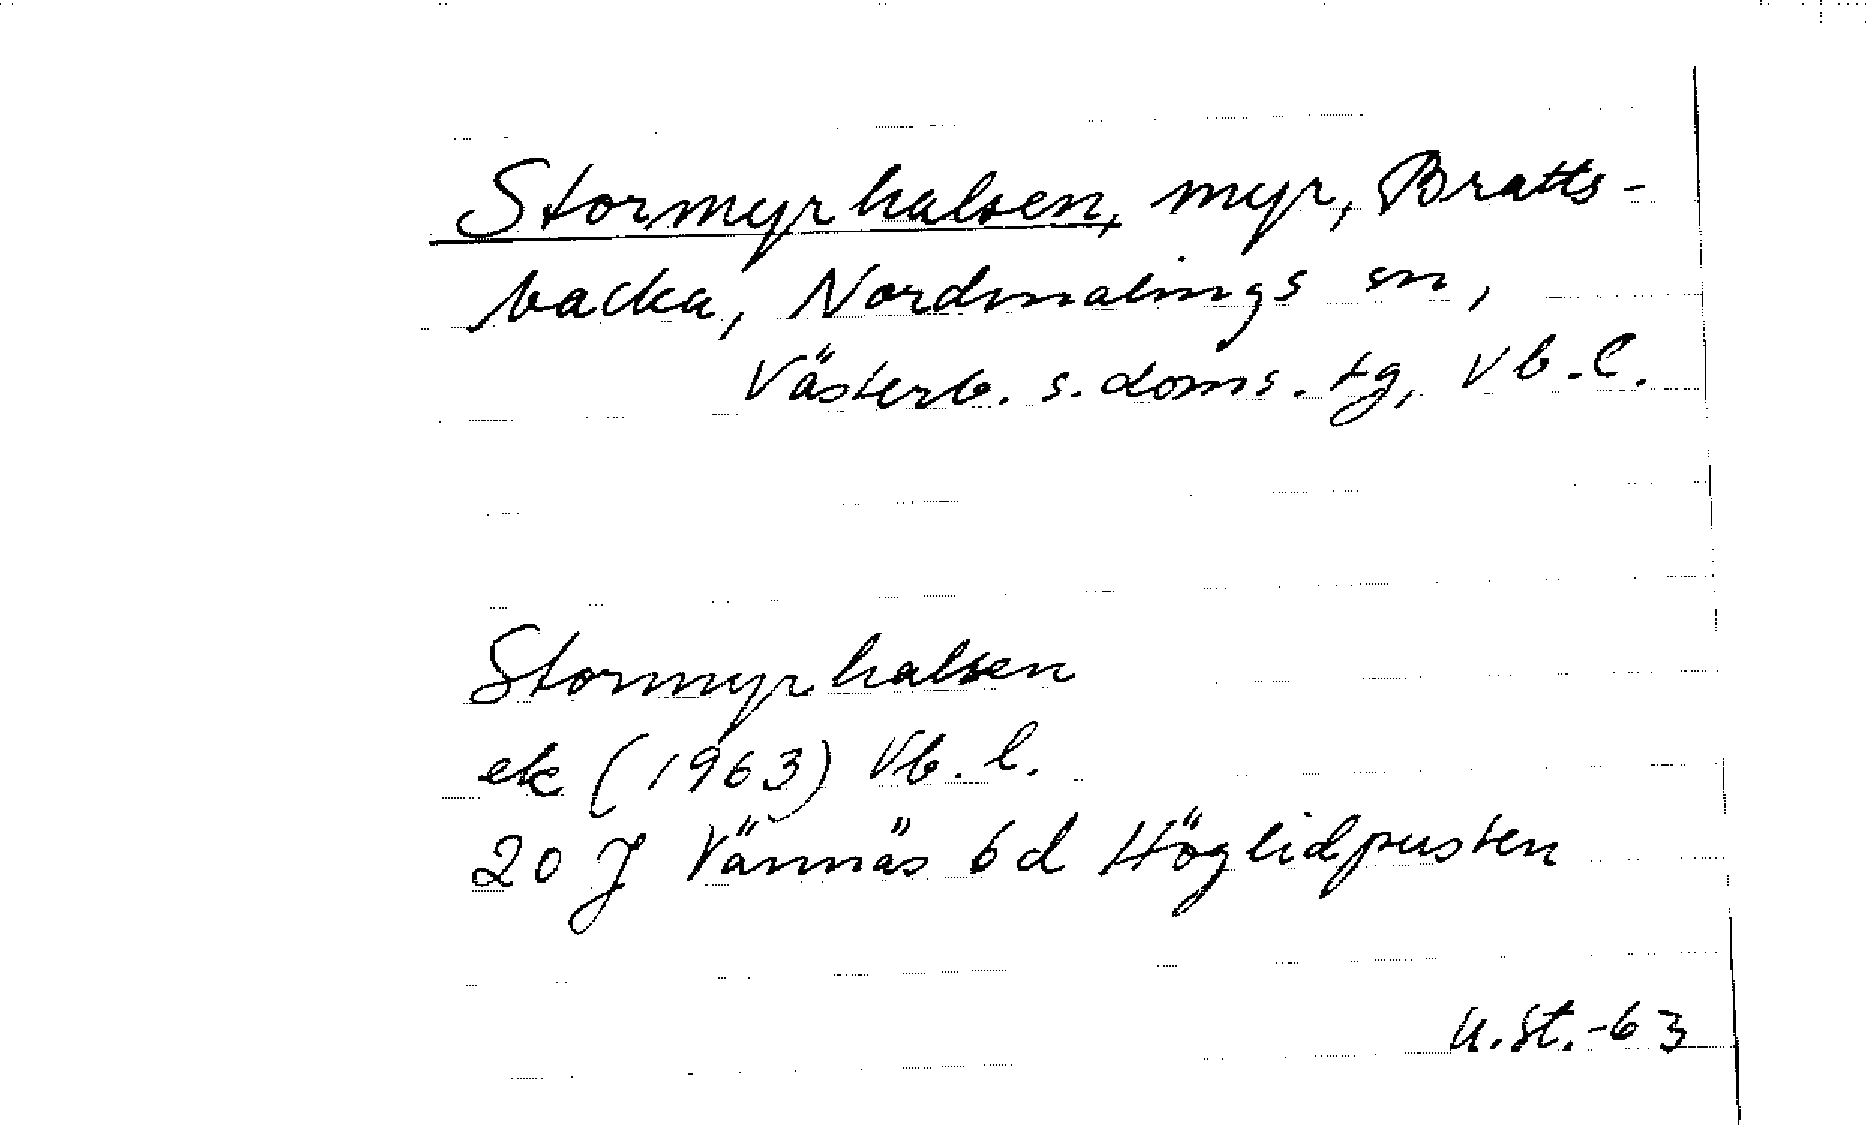 Stormyrhalsen, myr, Bratts-
backa, Nordmalings sn,
Västerb. s. doms. tg, Vb. l.
Stormyrhalsen
ek (1963) Vb. l.
20 J Vännäs 6d Höglidpusten
U. St. -63